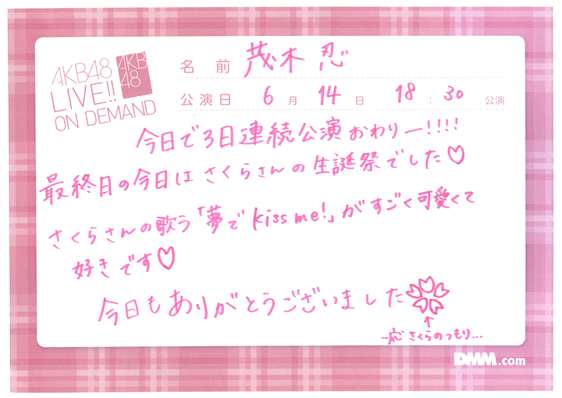 AKB48
LIVE!!
ON DEMAND
AKB
48
名前 茂木忍
公演日 6月14日 18:30公演
今日で3日連続公演おわりー!!!!
最終日の今日はさくらさんの生誕祭でした♡
さくらさんの歌う「夢でkiss me!」がすごく可愛くて
好きです♡
今日もありがとうございました
↑
一応さくらのつもり...
DMM.com